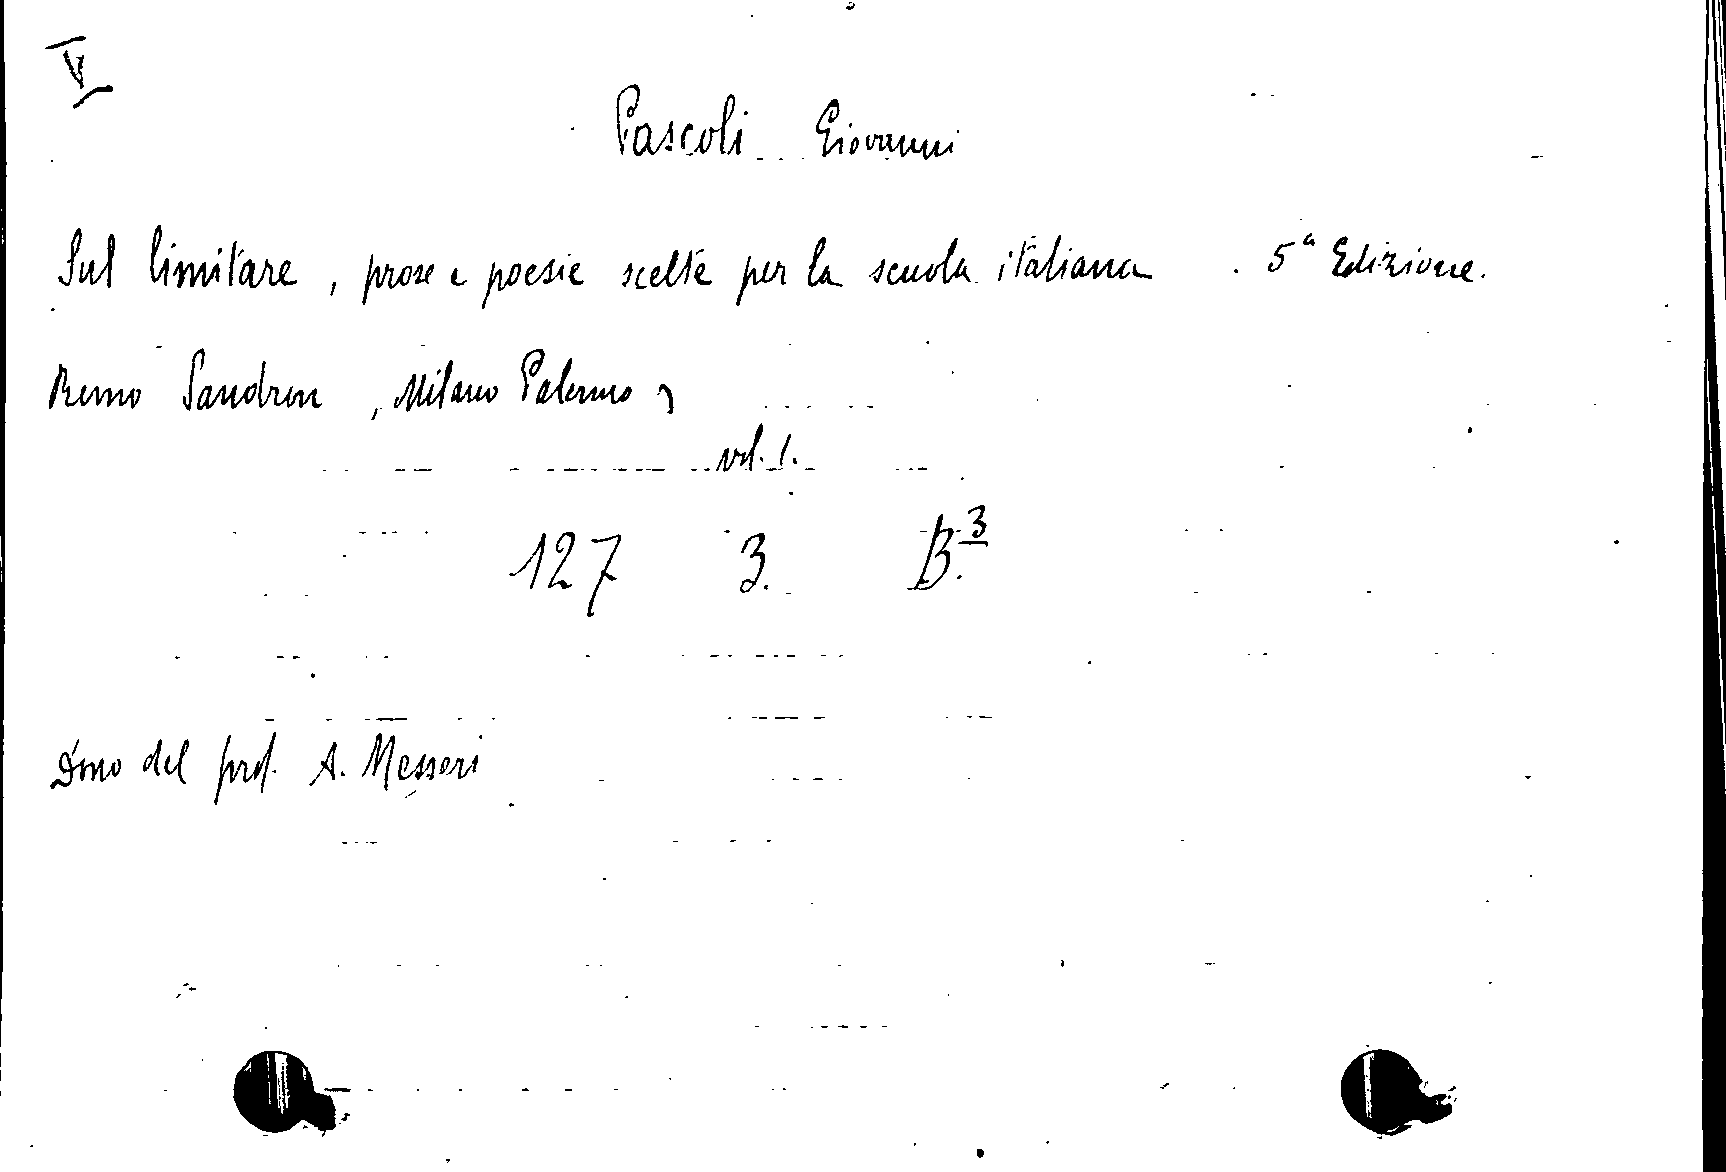 V
Pascoli Giovanni
Sul limitare, prose e poesie scelte per la scuola italiana. 5ª Edizione.
Remo Sandron, Milano Palermo,
vol. 1.
127 3. B.3
Dono del prof. A. Messeri